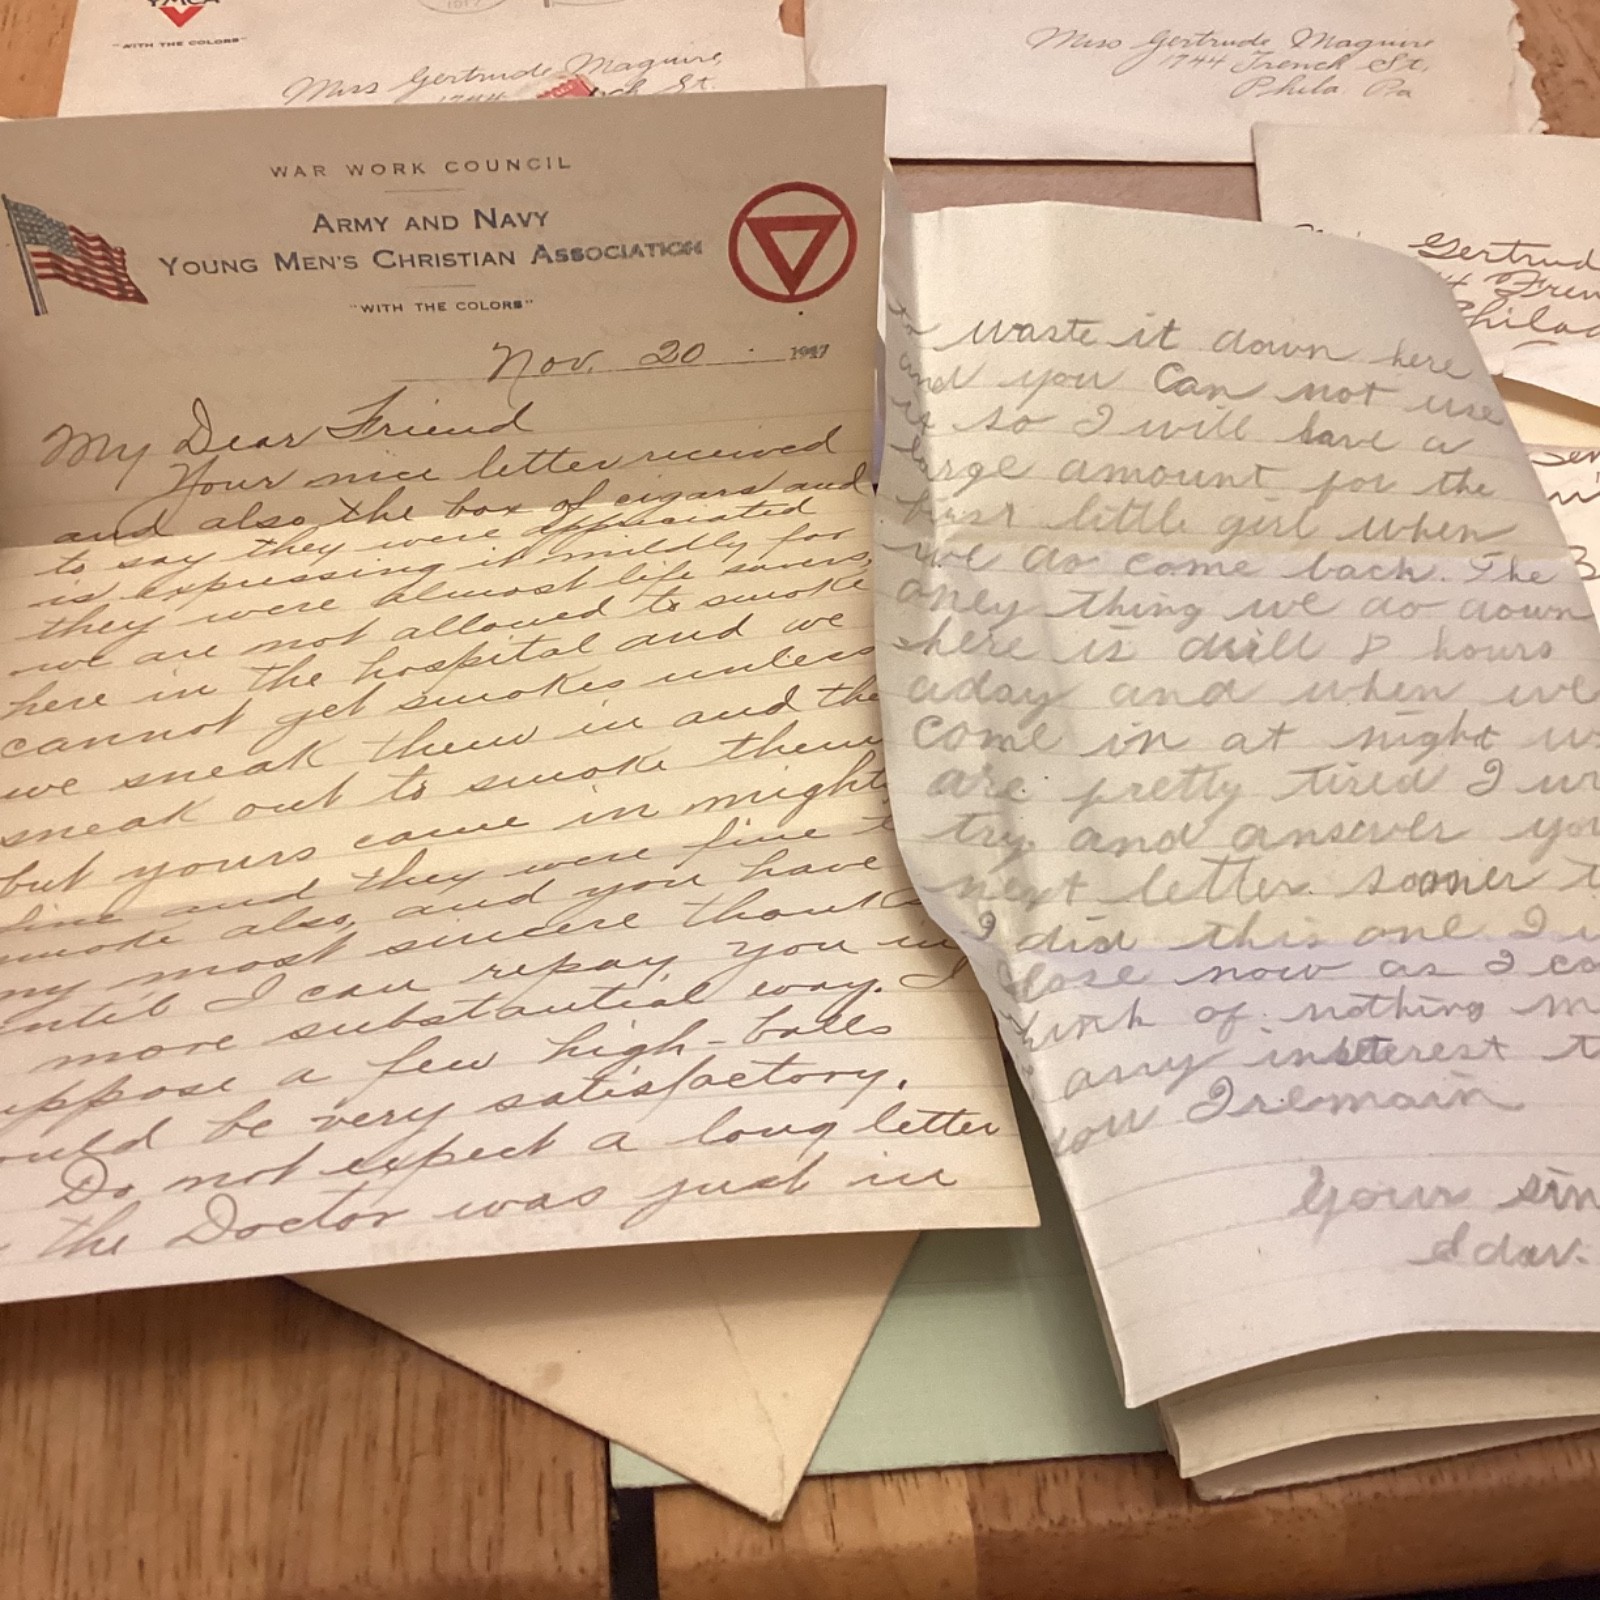 YMCA
"WITH THE COLORS"
Miss Gertrude Maguire,
1744 French St.
Miss Gertrude Maguire
1744 French St,
Phila. Pa
Gertrud
4 Fren
Philad
WAR WORK COUNCIL
ARMY AND NAVY
YOUNG MEN'S CHRISTIAN ASSOCIATION
"WITH THE COLORS"
Nov. 20 1917
My Dear Friend
Your nice letter received
and also the box of cigars and
to say they were appreciated
is expressing it mildly for
they were almost life savers,
we are not allowed to smoke
here in the hospital and we
cannot get smokes unless
we sneak them in and the
sneak out to smoke them
but yours came in might
fine and they were fine t
smoke also, and you have
my most sincere thanks
until I can repay you in
more substantial way. I
uppose a few high-balls
ould be very satisfactory.
Do not expect a long letter
the Doctor was just in
to waste it down here
and you can not use
it so I will save a
large amount for the
first little girl when
we do come back. The
oney thing we do down
here is drill 8 hours
aday and when we
come in at night we
are pretty tired I wi
try and answer you
next letter sooner t
I did this one I w
close now as I co
hink of nothing m
any interest t
you I remain
Your sin
Edw.